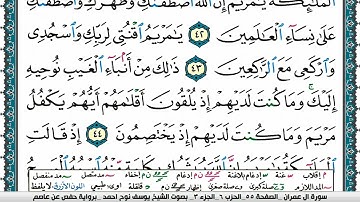 الْمَلَٰٓئِكَةُ يَٰمَرْيَمُ إِنَّ اللَّهَ اصْطَفَىٰكِ وَطَهَّرَكِ وَاصْطَفَىٰكِ
عَلَىٰ نِسَآءِ الْعَٰلَمِينَ ٤٢ يَٰمَرْيَمُ اقْنُتِى لِرَبِّكِ وَاسْجُدِى
وَارْكَعِى مَعَ الرَّٰكِعِينَ ٤٣ ذَٰلِكَ مِنْ أَنۢبَآءِ الْغَيْبِ نُوحِيهِ
إِلَيْكَ ۚ وَمَا كُنتَ لَدَيْهِمْ إِذْ يُلْقُونَ أَقْلَٰمَهُمْ أَيُّهُمْ يَكْفُلُ
مَرْيَمَ وَمَا كُنتَ لَدَيْهِمْ إِذْ يَخْتَصِمُونَ ٤٤ إِذْ قَالَتِ
سورة آل عمران . الصفحة ٥٥ . الحزب ٦ . الجزء ٣ . بصوت الشيخ يوسف نوح احمد . برواية حفص عن عاصم